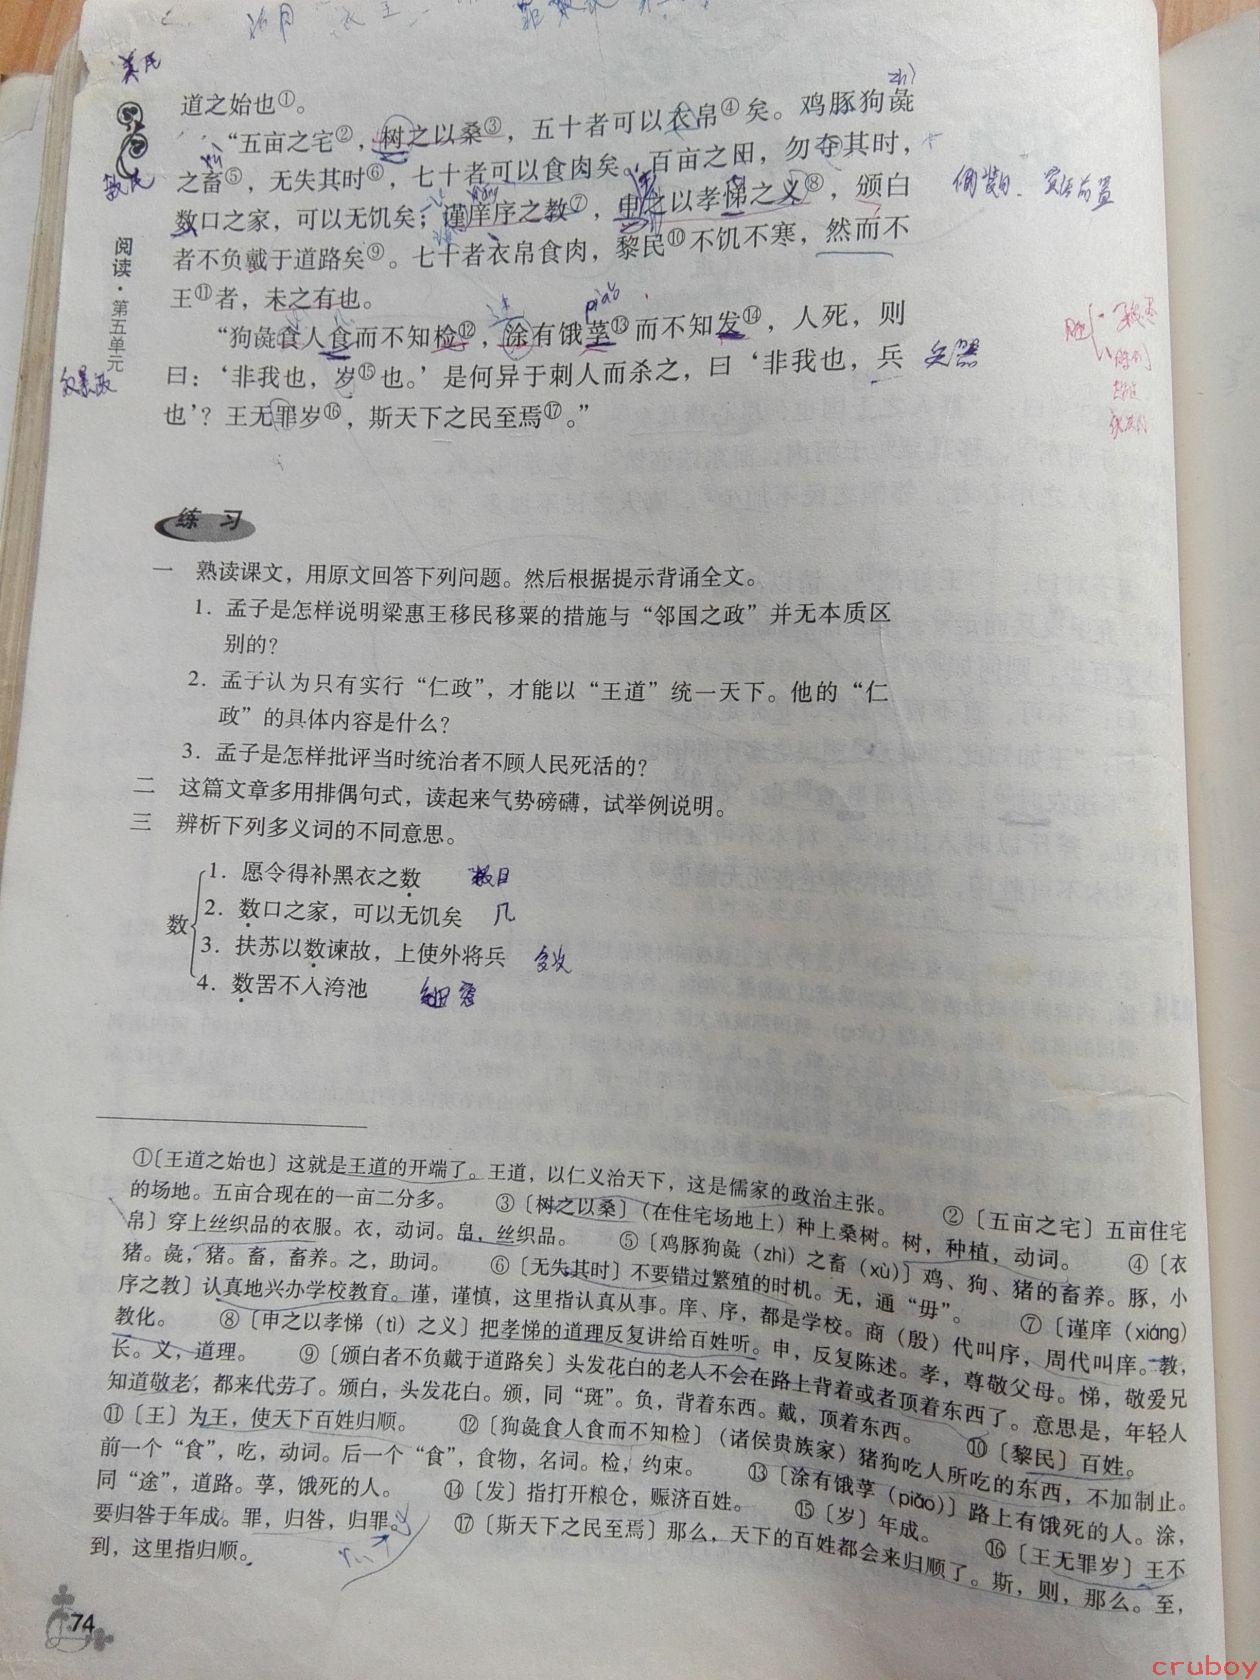 道之始也①。
“五亩之宅②，树之以桑③，五十者可以衣帛④矣。鸡豚狗彘
zhì
之畜⑤，无失其时⑥，七十者可以食肉矣。百亩之田，勿夺其时，
数口之家，可以无饥矣；谨庠序之教⑦，申之以孝悌之义⑧，颁白
者不负戴于道路矣⑨。七十者衣帛食肉，黎民⑩不饥不寒，然而不
王⑪者，未之有也。
piǎo
“狗彘食人食而不知检⑫，涂有饿莩⑬而不知发⑭，人死，则
曰：‘非我也，岁⑮也。’是何异于刺人而杀之，曰‘非我也，兵
兵器
也’？王无罪岁⑯，斯天下之民至焉⑰。”
阅读·第五单元
练 习
一 熟读课文，用原文回答下列问题。然后根据提示背诵全文。
1. 孟子是怎样说明梁惠王移民移粟的措施与“邻国之政”并无本质区
别的？
2. 孟子认为只有实行“仁政”，才能以“王道”统一天下。他的“仁
政”的具体内容是什么？
3. 孟子是怎样批评当时统治者不顾人民死活的？
二 这篇文章多用排偶句式，读起来气势磅礴，试举例说明。
三 辨析下列多义词的不同意思。
数
1. 愿令得补黑衣之数 数目
2. 数口之家，可以无饥矣 几
3. 扶苏以数谏故，上使外将兵 多次
4. 数罟不入洿池 细密
①〔王道之始也〕这就是王道的开端了。王道，以仁义治天下，这是儒家的政治主张。 ②〔五亩之宅〕五亩住宅
的场地。五亩合现在的一亩二分多。 ③〔树之以桑〕（在住宅场地上）种上桑树。树，种植，动词。 ④〔衣
帛〕穿上丝织品的衣服。衣，动词。帛，丝织品。 ⑤〔鸡豚狗彘（zhì）之畜（xù）〕鸡、狗、猪的畜养。豚，小
猪。彘，猪。畜，畜养。之，助词。 ⑥〔无失其时〕不要错过繁殖的时机。无，通“毋”。 ⑦〔谨庠（xiáng）
序之教〕认真地兴办学校教育。谨，谨慎，这里指认真从事。庠、序，都是学校。商（殷）代叫序，周代叫庠。教，
教化。 ⑧〔申之以孝悌（tì）之义〕把孝悌的道理反复讲给百姓听。申，反复陈述。孝，尊敬父母。悌，敬爱兄
长。义，道理。 ⑨〔颁白者不负戴于道路矣〕头发花白的老人不会在路上背着或者顶着东西了。意思是，年轻人
知道敬老，都来代劳了。颁白，头发花白。颁，同“斑”。负，背着东西。戴，顶着东西。 ⑩〔黎民〕百姓。
⑪〔王〕为王，使天下百姓归顺。 ⑫〔狗彘食人食而不知检〕（诸侯贵族家）猪狗吃人所吃的东西，不加制止。
前一个“食”，吃，动词。后一个“食”，食物，名词。检，约束。 ⑬〔涂有饿莩（piǎo）〕路上有饿死的人。涂，
同“途”，道路。莩，饿死的人。 ⑭〔发〕指打开粮仓，赈济百姓。 ⑮〔岁〕年成。 ⑯〔王无罪岁〕王不
要归咎于年成。罪，归咎，归罪。 ⑰〔斯天下之民至焉〕那么，天下的百姓都会来归顺了。斯，则，那么。至，
到，这里指归顺。
74
cruboy